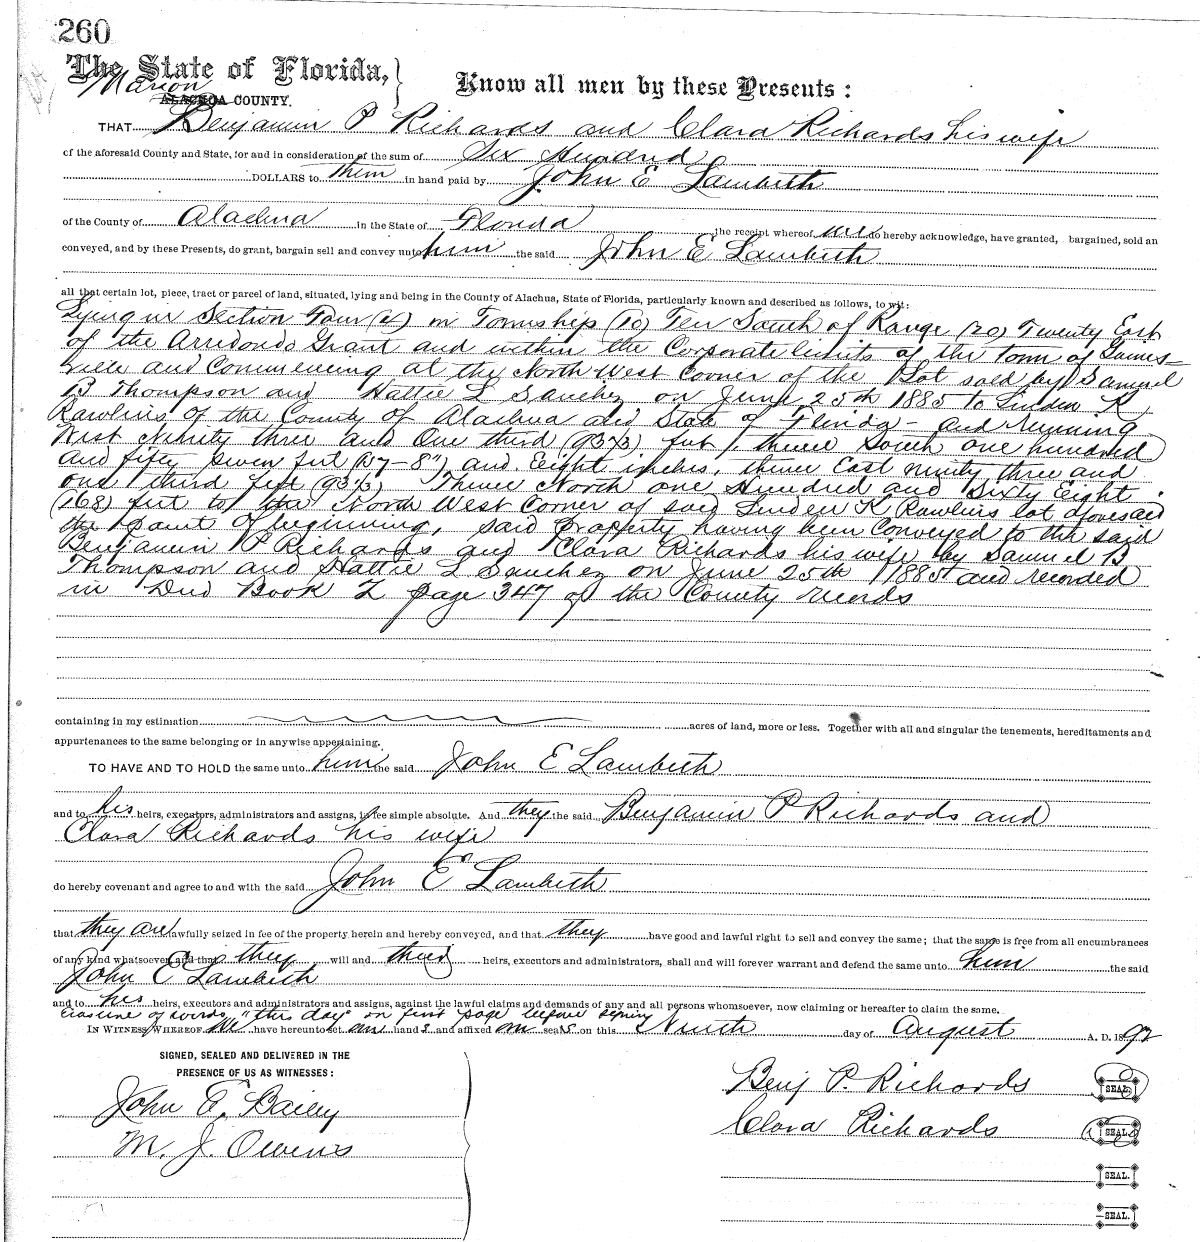 260
The State of Florida,
Marion
ALACHUA COUNTY.
Know all men by these Presents:
THAT Benjamin P Richards and Clara Richards his wife
of the aforesaid County and State, for and in consideration of the sum of Six Hundred
DOLLARS to them in hand paid by John E Lambeth
of the County of Alachua in the State of Florida the receipt whereof we do hereby acknowledge, have granted, bargained, sold an
conveyed, and by these Presents, do grant, bargain sell and convey unto him the said John E Lambeth
all that certain lot, piece, tract or parcel of land, situated, lying and being in the County of Alachua, State of Florida, particularly known and described as follows, to wit:
Lying in Section Four (4) in Township (10) Ten South of Range (20) Twenty East
of the Arredondo Grant and within the Corporate limits of the town of Gaines-
ville and Commencing at the North West Corner of the Lot sold by Samuel
B Thompson and Hattie L Sanchez on June 25th 1885 to Linden K
Rawlins of the County of Alachua and State of Florida - and running
West Ninety three and One third (93⅓) feet, thence South one hundred
and fifty seven feet (157-8") and Eight inches, thence East ninety three and
one third feet (93⅓) Thence North one Hundred and Sixty Eight
(168) feet to the North West Corner of said Linden K Rawlins lot aforesaid
the point of beginning, said property having been Conveyed to the said
Benjamin P Richards and Clara Richards his wife by Samuel B
Thompson and Hattie L Sanchez on June 25th 1885 and recorded
in Deed Book Z page 347 of the County records
containing in my estimation acres of land, more or less. Together with all and singular the tenements, hereditaments and
appurtenances to the same belonging or in anywise appertaining.
TO HAVE AND TO HOLD the same unto him the said John E Lambeth
and to his heirs, executors, administrators and assigns, in fee simple absolute. And they the said Benjamin P Richards and
Clara Richards his wife
do hereby covenant and agree to and with the said John E Lambeth
that they are lawfully seized in fee of the property herein and hereby conveyed, and that they have good and lawful right to sell and convey the same; that the same is free from all encumbrances
of any kind whatsoever and that they will and their heirs, executors and administrators, shall and will forever warrant and defend the same unto him the said
John E Lambeth
and to his heirs, executors and administrators and assigns, against the lawful claims and demands of any and all persons whomsoever, now claiming or hereafter to claim the same.
Erasure of words "this day" on first page before signing
IN WITNESS WHEREOF We have hereunto set our hands and affixed our seals on this Ninth day of August A. D. 1892
SIGNED, SEALED AND DELIVERED IN THE
PRESENCE OF US AS WITNESSES:
John F. Bailey
M. J. Owens
Benj P. Richards SEAL
Clara Richards SEAL
SEAL.
SEAL.